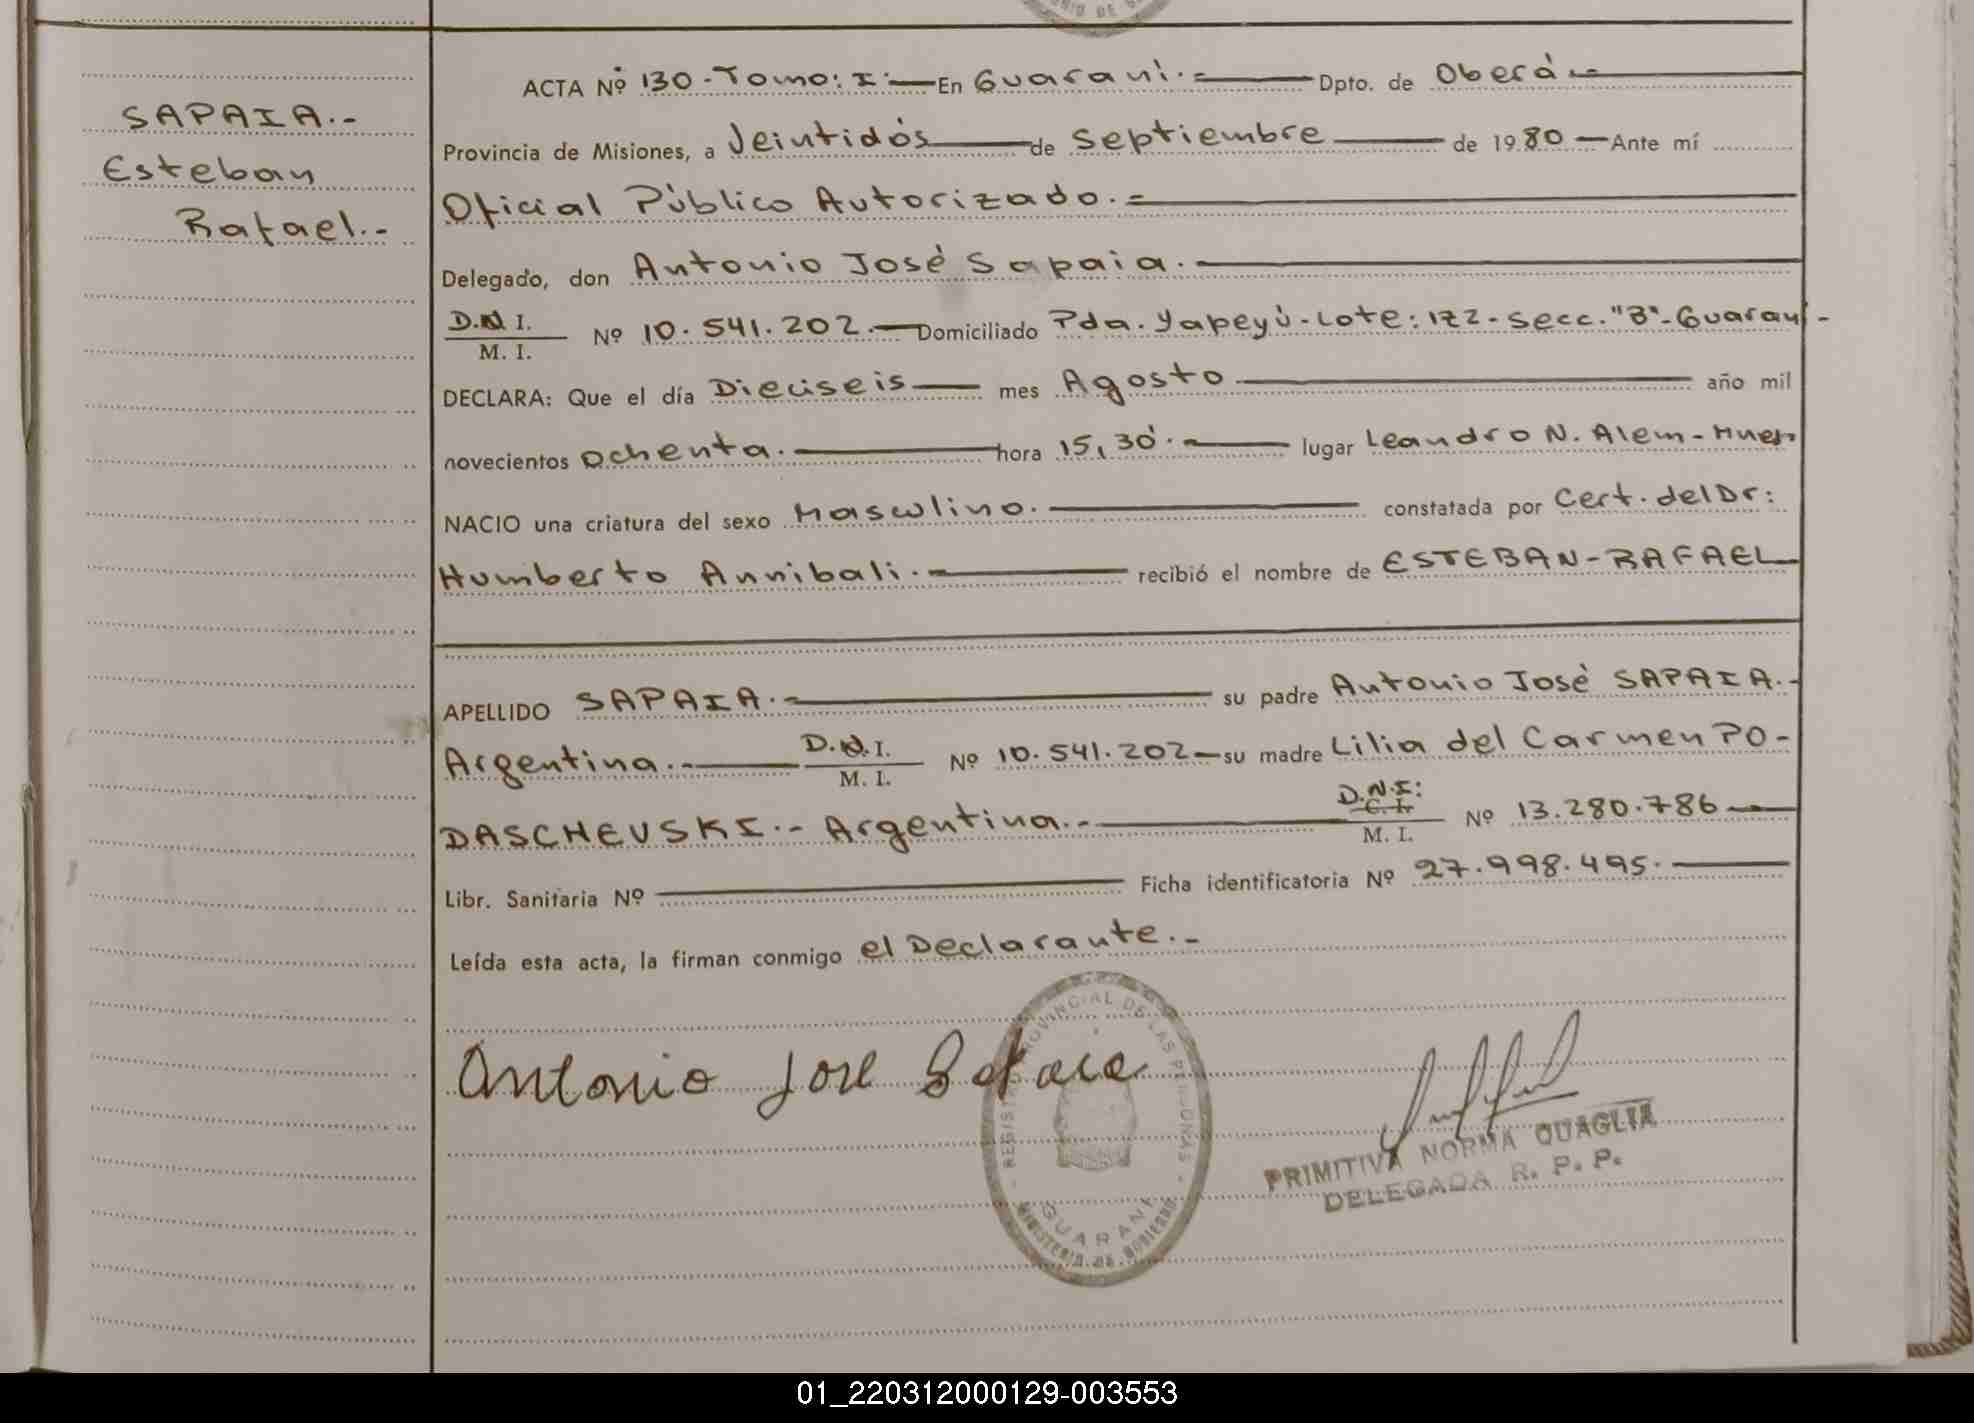 SAPAIA.-
Esteban
Rafael.-
ACTA Nº 130.-Tomo: I.- En Guaraní.- Dpto. de Oberá.-
Provincia de Misiones, a Veintidós de Septiembre de 1980 Ante mí
Oficial Público Autorizado.-
Delegado, don Antonio José Sapaia.-
D.N.I.
M. I. Nº 10.541.202.- Domiciliado Pda. Yapeyú-Lote: 172-Secc. "B"-Guaraní-
DECLARA: Que el día Dieciseis mes Agosto año mil
novecientos ochenta. hora 15,30.- lugar Leandro N. Alem-Mnes
NACIO una criatura del sexo Masculino. constatada por Cert. del Dr:
Humberto Annibali.- recibió el nombre de ESTEBAN-RAFAEL
APELLIDO SAPAIA.- su padre Antonio José SAPAIA.-
Argentina.- D.N.I.
M. I. Nº 10.541.202- su madre Lilia del Carmen PO-
DASCHEVSKI.- Argentina.- D.N.I: C. I.
M. I. Nº 13.280.786
Libr. Sanitaria Nº Ficha identificatoria Nº 27.998.495.
Leída esta acta, la firman conmigo el Declarante.-
Antonio José Sapaia
REGISTRO PROVINCIAL DE LAS PERSONAS
GUARANI
MINISTERIO DE GOBIERNO
PRIMITIVA NORMA QUAGLIA
DELEGADA R. P. P.
01_220312000129-003553